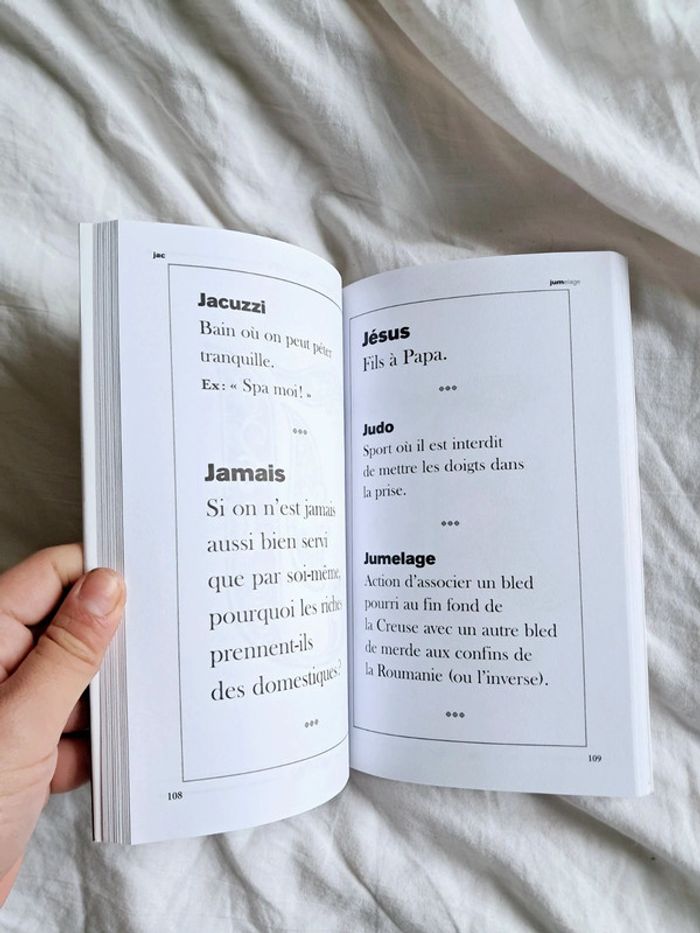 jac
Jacuzzi
Bain où on peut péter
tranquille.
Ex : « Spa moi ! »
Jamais
Si on n'est jamais
aussi bien servi
que par soi-même,
pourquoi les riches
prennent-ils
des domestiques ?
108
jumelage
Jésus
Fils à Papa.
Judo
Sport où il est interdit
de mettre les doigts dans
la prise.
Jumelage
Action d'associer un bled
pourri au fin fond de
la Creuse avec un autre bled
de merde aux confins de
la Roumanie (ou l'inverse).
109